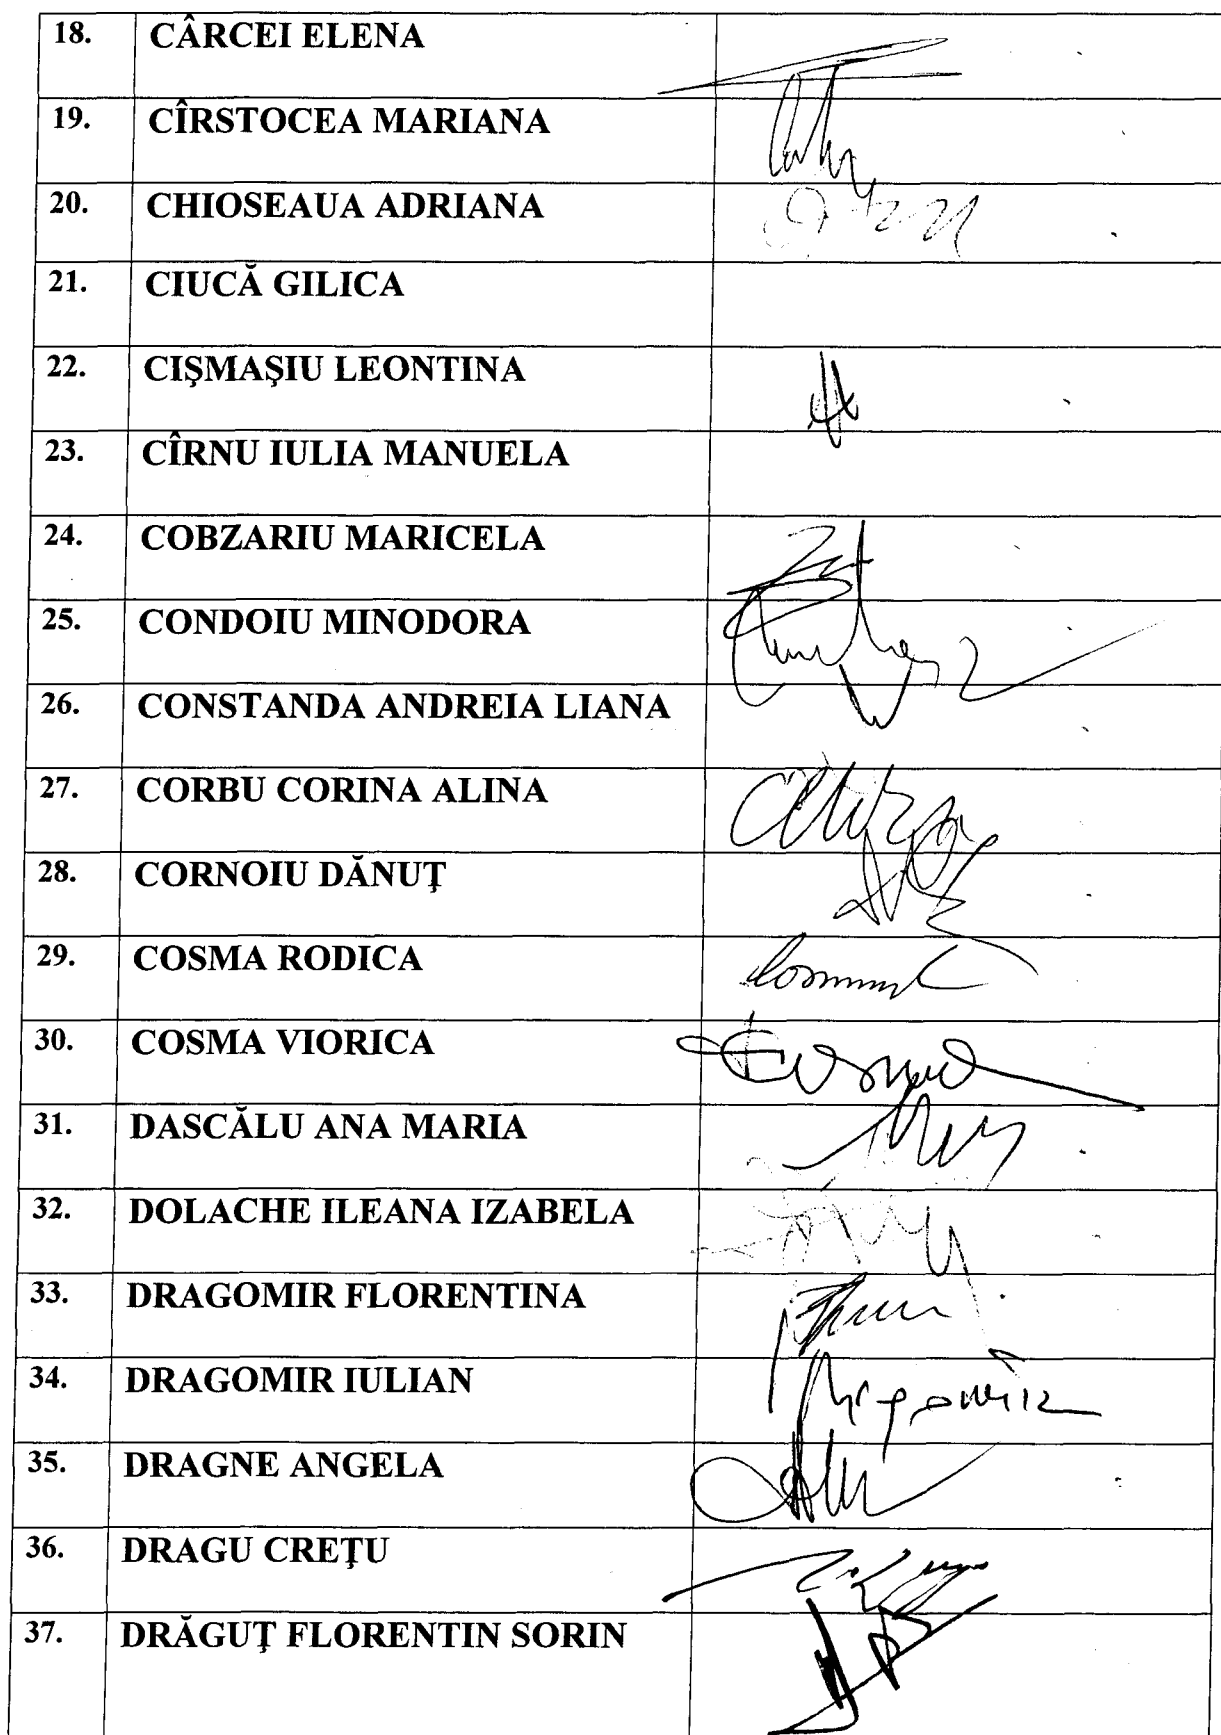 18. CÂRCEI ELENA
19. CÎRSTOCEA MARIANA
20. CHIOSEAUA ADRIANA
21. CIUCĂ GILICA
22. CIŞMAŞIU LEONTINA
23. CÎRNU IULIA MANUELA
24. COBZARIU MARICELA
25. CONDOIU MINODORA
26. CONSTANDA ANDREIA LIANA
27. CORBU CORINA ALINA
28. CORNOIU DĂNUŢ
29. COSMA RODICA
30. COSMA VIORICA
31. DASCĂLU ANA MARIA
32. DOLACHE ILEANA IZABELA
33. DRAGOMIR FLORENTINA
34. DRAGOMIR IULIAN
35. DRAGNE ANGELA
36. DRAGU CREŢU
37. DRĂGUŢ FLORENTIN SORIN